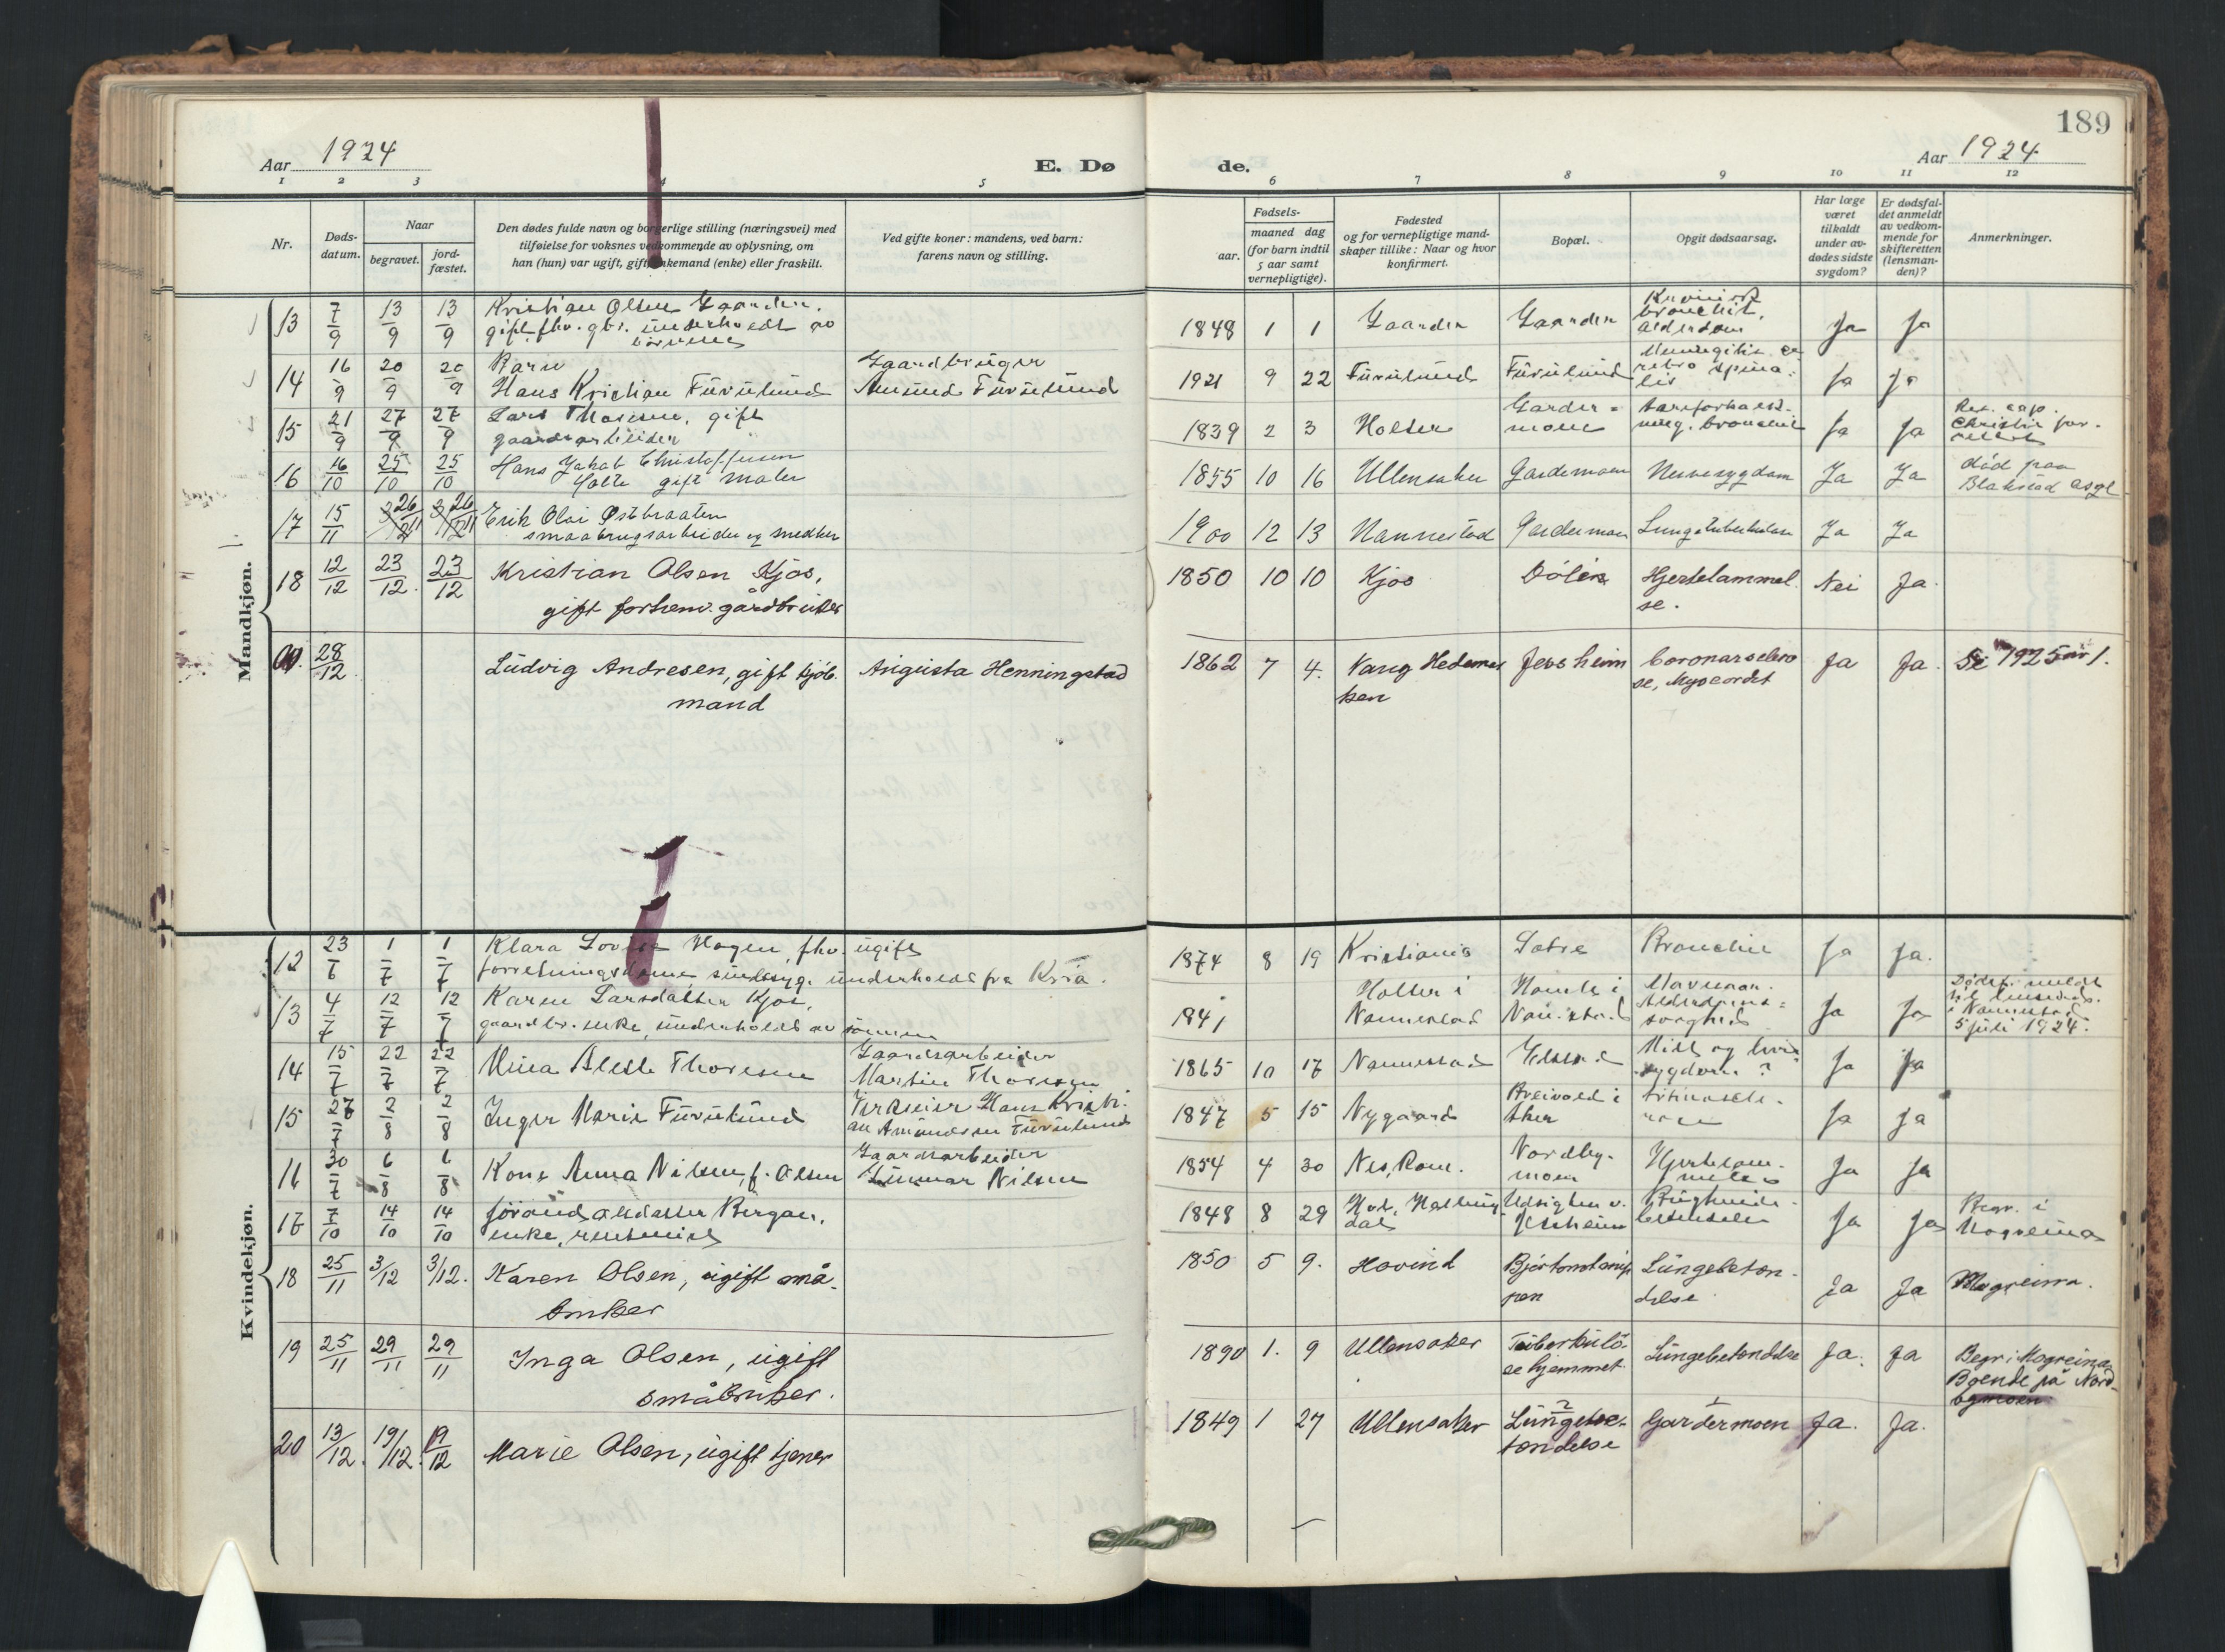 189
Aar 1924
E. Dø
de.
Aar 1924
1 2 3 4 5 6 7 8 9 10 11 12
Nr.
Døds-
datum.
Naar
begravet.
jord-
fæstet.
Den dødes fulde navn og borgerlige stilling (næringsvei) med
tilføielse for voksnes vedkommende av oplysning, om
han (hun) var ugift, gift, enkemand (enke) eller fraskilt.
Ved gifte koner: mandens, ved barn:
farens navn og stilling.
Fødsels-
aar.
maaned dag
(for barn indtil
5 aar samt
vernepligtige).
Fødested
og for vernepligtige mand-
skaper tillike: Naar og hvor
konfirmert.
Bopæl.
Opgit dødsaarsag.
Har læge
været
tilkaldt
under av-
dødes sidste
sygdom?
Er dødsfal-
det anmeldt
av vedkom-
mende for
skifteretten
(lensman-
den)?
Anmerkninger.
Mandkjøn.
13 7/9 13/9 13/9 Kristian Olsen Gaarder,
gift fhv. gbr. underholdt av
1848 1 1 Gaarder Gaarder
bronchit,
alderdom
Ja Ja
14 16/9 20/9 20/9 Barn
Hans Kristian Furulund
Gaardbruger
Amund Furulund
1921 9 22 Furulund Furulund
Ja Ja
15 21/9 27/9 27/9 Lars Thoresen, gift
gaardsarbeider
1839 2 3 Holter
Garder=
moen
Ja Ja
Res. cap.
Christie for-
16 16/10 25/10 25/10 Hans Jakob Christoffersen
gift maler
1855 10 16 Ullensaker Gardermoen Nervesygdom Ja Ja
død paa
Blakstad asyl
17 15/11 26/11 26/11 Erik Olai Østbraaten
smaabrugsarbeider og snedker
1900 12 13 Nannestad Gardermoen Lungetuberkulose Ja Ja
18 12/12 23/12. 23/12 Kristian Olsen Kjos,
gift forhenv. gårdbruker
1850 10 10 Kjos Dølin Hjertelammel-
se.
Nei Ja.
28/12 Ludvig Andresen, gift kjøb-
mand
Augusta Henningstad
1862 7 4. Vang Hedemar
ken
Jessheim
se, Myocardit
Ja Ja.
Se 1925 nr 1.
Kvindekjøn.
12 23/6 1/7 1/7 Klara Lovise Hagen, fhv. ugift
forretningsdame, sindssyg, underholdt fra Kria.
1874 8 19 Kristiania Sotre Bronchit Ja Ja.
13 4/7 12/7 12/7 Karen Larsdatter Kjos,
gaardbr. enke, underholdt av sønnen
1841
Holter i
Nannestad
Ja Ja
Dødsf. meldt
til lensmd.
i Nannestad
5 juli 1924.
14 15/7 22/7 22/7 Mina Thoresen
Gaardsarbeider
Martin Thoresen
1865 10 17 Nannestad
Milt og lever-
sygdom?
Ja Ja
15 27/7 2/8 2/8 Inger Marie Furulund
Hans Kristi-
an Amundsen Furulund
1847 5 15 Nygaard
Ja Ja
16 30/7 6/8 6/8 Kone Anna Nilsen, f. Olsen
Gaardsarbeider
Gunnar Nilsen
1854 4 30 Nes, Rom.
Nordby-
moen
Ja Ja
17 7/10 14/10 14/10 Jørand Bergan,
enke,
1848 8 29 Hol, Hallings-
dal
Utsigten v.
Jessheim
Ja Ja
Begr. i
Mogreina
18 25/11 3/12 3/12. Karen Olsen, ugift små-
bruker
1850 5 9. Hovind
Lungebeten-
delse
Ja Ja Mogreina.
19 25/11 29/11 29/11 Inga Olsen, ugift
småbruker.
1890 1. 9 Ullensaker
Tuberkulo-
sehjemmet
Lungebetendelse Ja. Ja
Begr. i Mogreina
Boende på Nord-
bymoen
20 13/12 19/12. 19/12 Marie Olsen, ugift tjener
1849 1 27 Ullensaker
2
Lungebe-
tendelse
1
Gardermoen Ja. Ja.